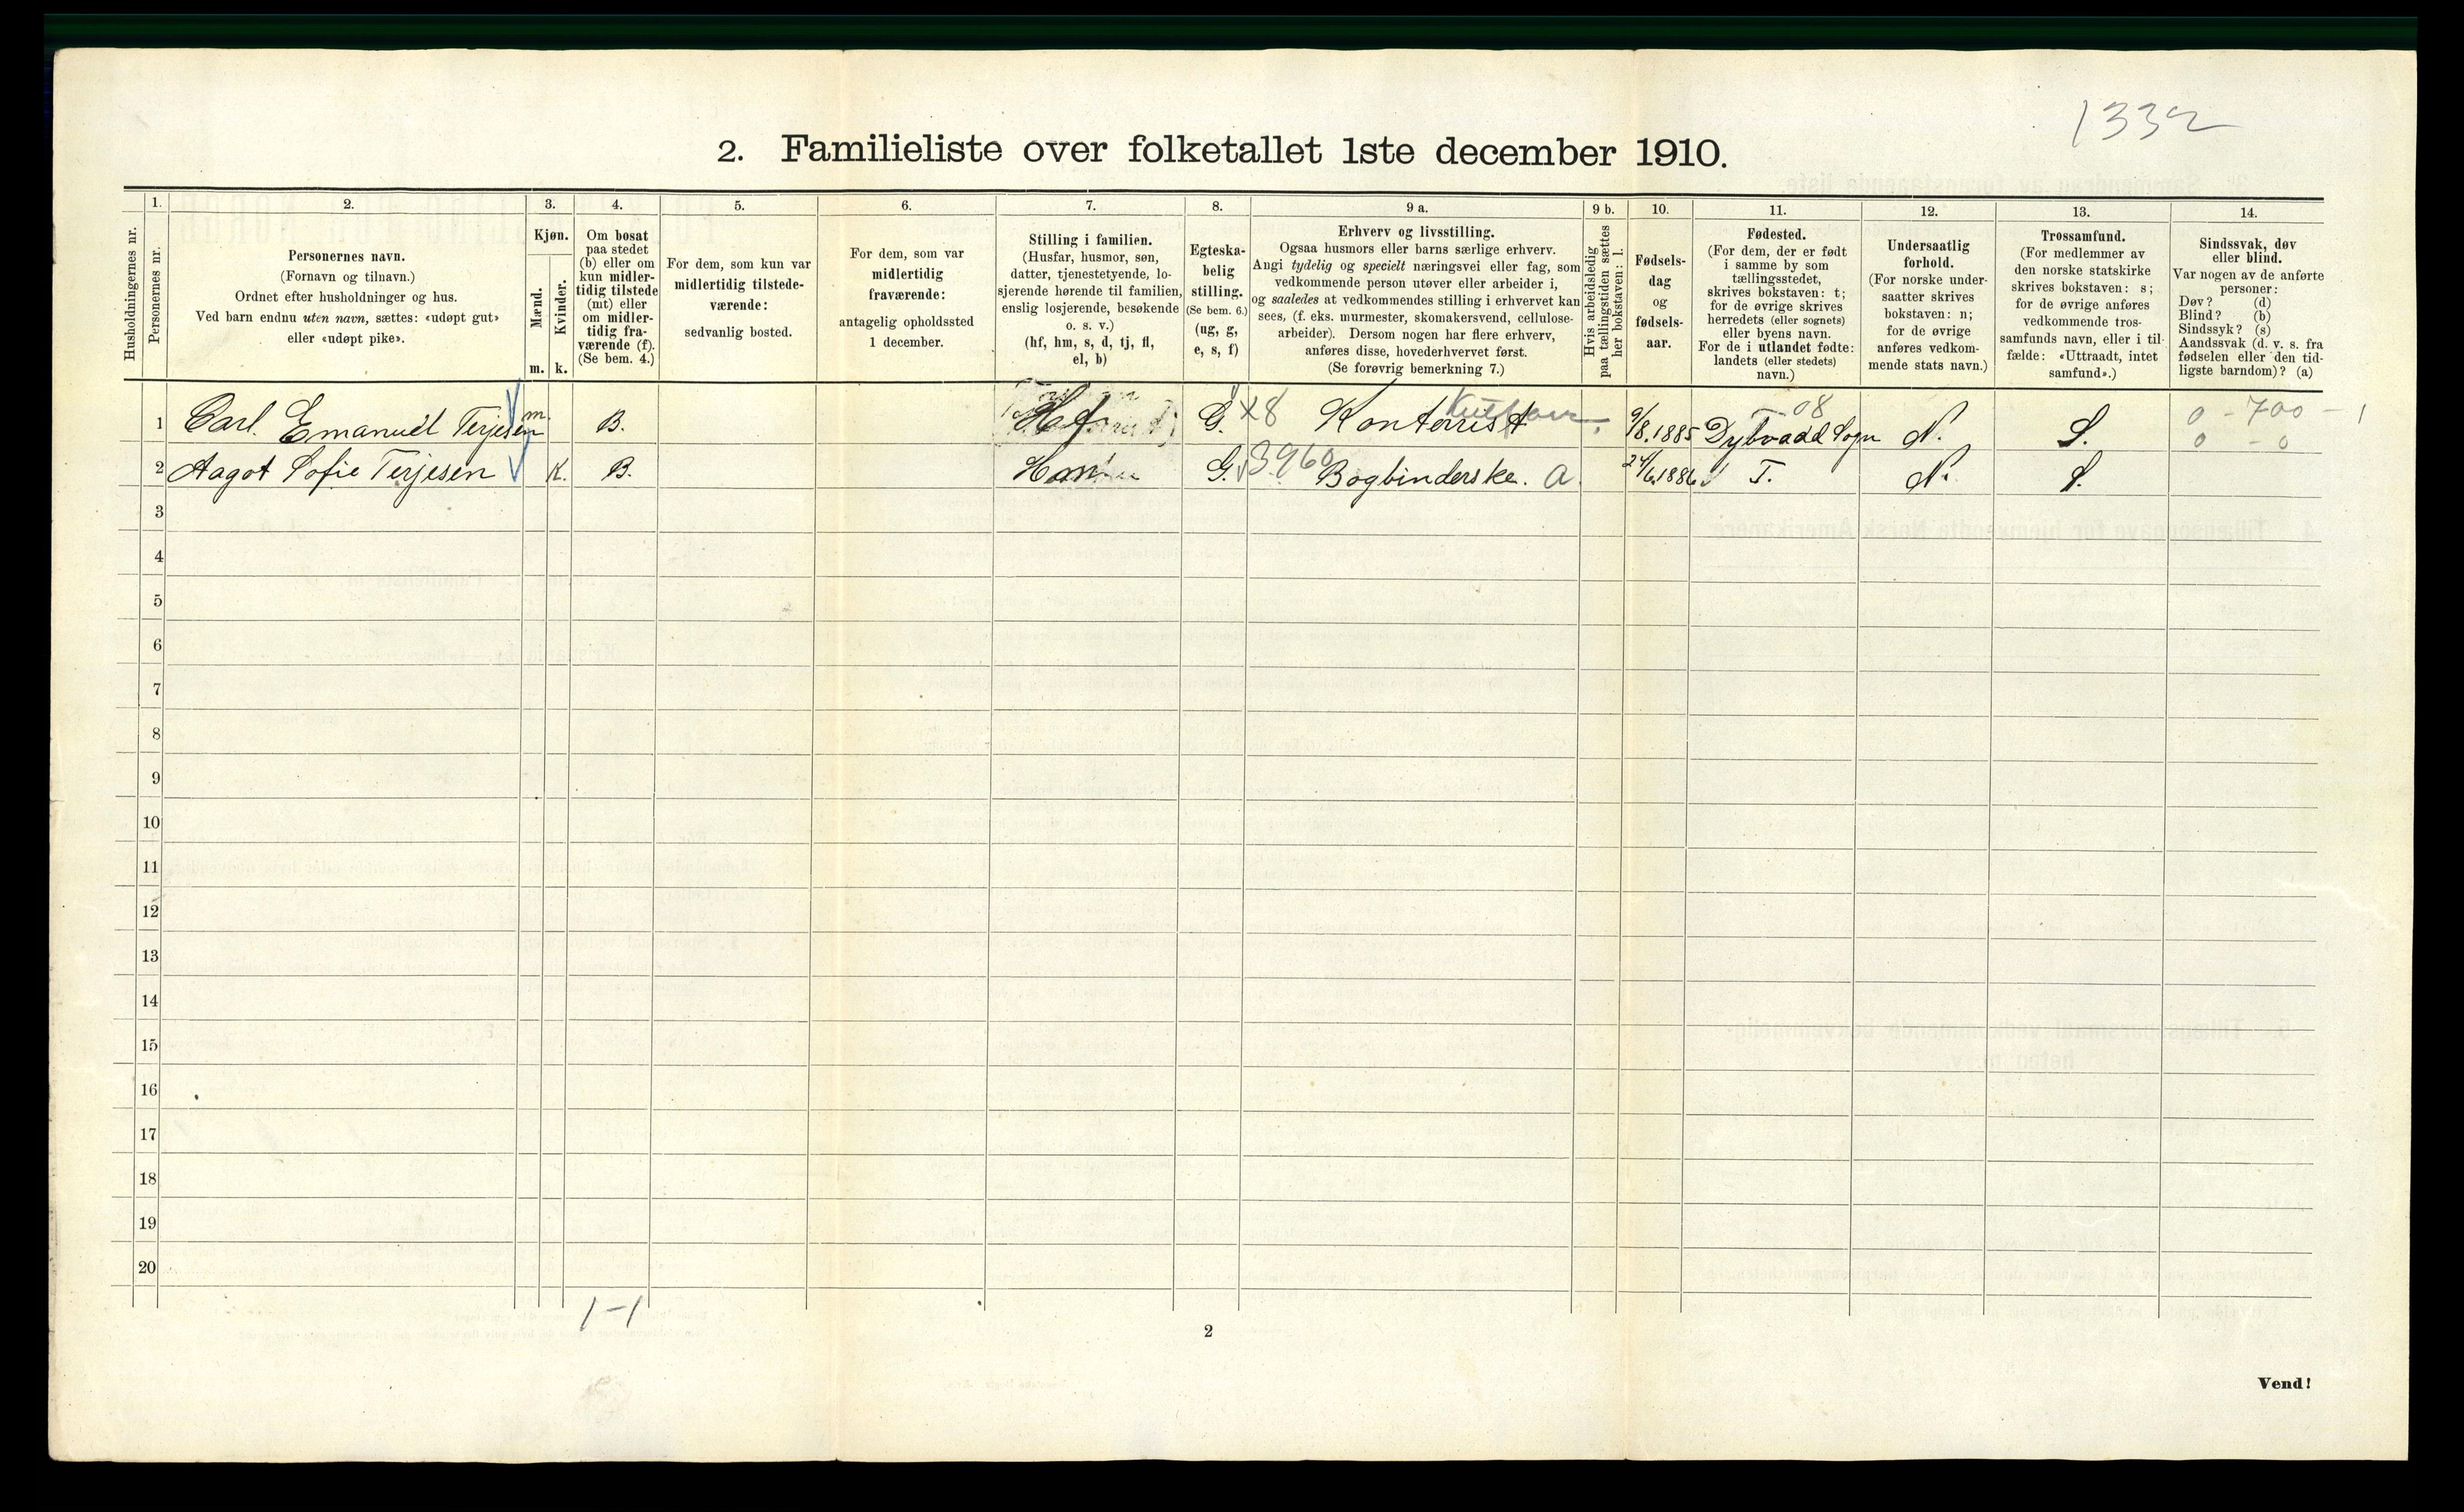 1332
2. Familieliste over folketallet 1ste december 1910.
Husholdningernes nr.
1.
Personernes nr.
2.
Personernes navn.
(Fornavn og tilnavn.)
Ordnet efter husholdninger og hus.
Ved barn endnu uten navn, sættes: «udøpt gut»
eller «udøpt pike».
3.
Kjøn.
Mænd.
Kvinder.
m.
k.
4.
Om bosat
paa stedet
(b) eller om
kun midler-
tidig tilstede
(mt) eller
om midler-
tidig fra-
værende (f).
(Se bem. 4.)
5.
For dem, som kun var
midlertidig tilstede-
værende:
sedvanlig bosted.
6.
For dem, som var
midlertidig
fraværende:
antagelig opholdssted
1 december.
7.
Stilling i familien.
(Husfar, husmor, søn,
datter, tjenestetyende, lo-
sjerende hørende til familien,
enslig losjerende, besøkende
o. s. v.)
(hf, hm, s, d, tj, fl,
el, b)
8.
Egteska-
belig
stilling.
(Se bem. 6.)
(ug, g,
e, s, f)
9 a.
Erhverv og livsstilling.
Ogsaa husmors eller barns særlige erhverv.
Angi tydelig og specielt næringsvei eller fag, som
vedkommende person utøver eller arbeider i,
og saaledes at vedkommendes stilling i erhvervet kan
sees, (f. eks. murmester, skomakersvend, cellulose-
arbeider). Dersom nogen har flere erhverv,
anføres disse, hovederhvervet først.
(Se forøvrig bemerkning 7.)
9 b.
Hvis arbeidsledig
paa tællingstiden sættes
her bokstaven: l.
10.
Fødsels-
dag
og
fødsels-
aar.
11.
Fødested.
(For dem, der er født
i samme by som
tællingsstedet,
skrives bokstaven: t;
for de øvrige skrives
herredets (eller sognets)
eller byens navn.
For de i utlandet fødte:
landets (eller stedets)
navn.)
12.
Undersaatlig
forhold.
(For norske under-
saatter skrives
bokstaven: n;
for de øvrige
anføres vedkom-
mende stats navn.)
13.
Trossamfund.
(For medlemmer av
den norske statskirke
skrives bokstaven: s;
for de øvrige anføres
vedkommende tros-
samfunds navn, eller i til-
fælde: «Uttraadt, intet
samfund».)
14.
Sindssvak, døv
eller blind.
Var nogen av de anførte
personer:
Døv? (d)
Blind? (b)
Sindssyk? (s)
Aandssvak (d. v. s. fra
fødselen eller den tid-
ligste barndom)? (a)
1 Carl. Emanuel Terjesen m. B. Hf. G. X8 Kontorist 9/8.1885 08 Dybvaad Sogn N. S. 0 - 700 - 1
0 - 0
2 Aagot Sofie Terjesen K. B. Hm G. 3960 Bogbinderske. a. 24/6.1886 T. N. S.
3
4
5
6
7
8
9
10
11
12
13
14
15
16
17
18
19
20
1-1
2
Vend!